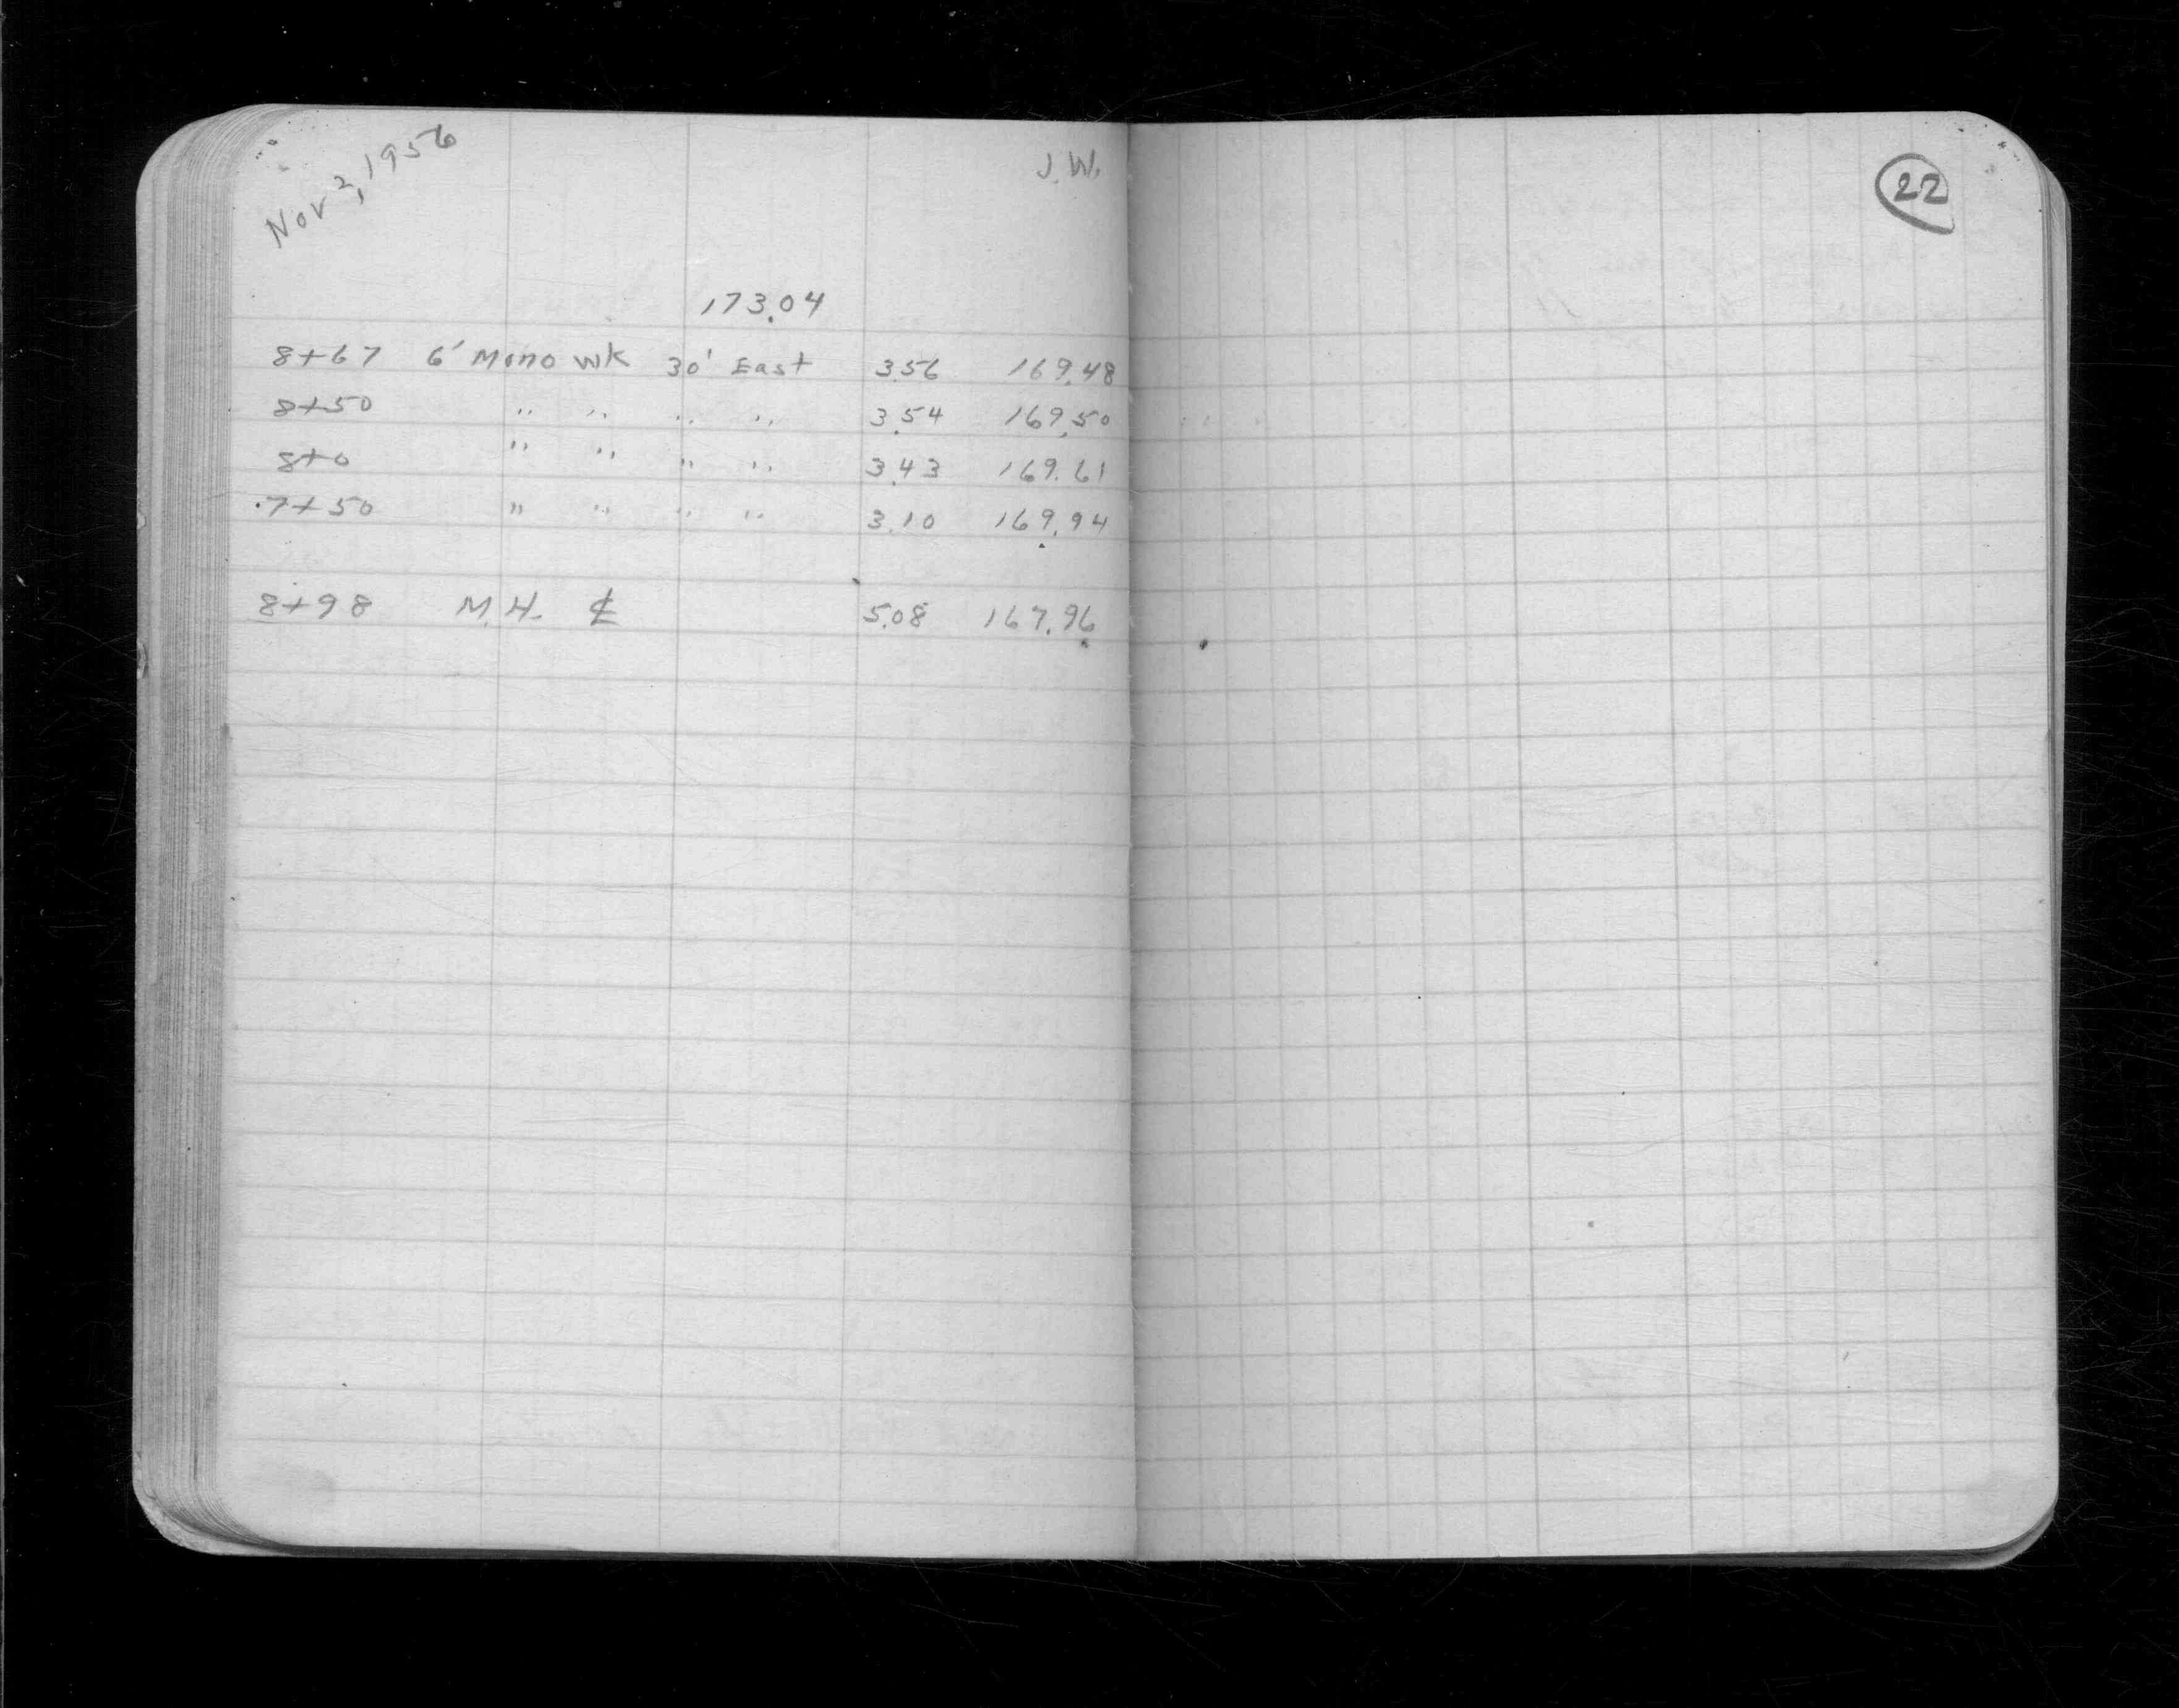 Nov 3, 1956
J. W.
22
173.04
8+67 6' Mono wk 30' East 3.56 169.48
8+50 " " " " 3.54 169.50
8+0 " " " " 3.43 169.61
7+50 " " " " 3.10 169.94
8+98 M.H. ℄ 5.08 167.96